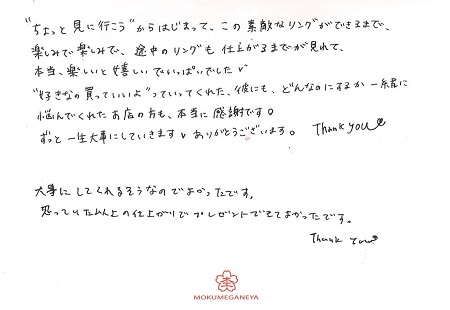 "ちょっと見に行こう"からはじまって、この素敵なリングができるまで、
楽しみで楽しみで、途中のリングも仕上がるまでが見れて、
本当、楽しいと嬉しいでいっぱいでした♥
"好きなの買っていいよ"っていってくれた、彼にも、どんなのにするか一緒に
悩んでくれたお店の方も、本当に感謝です。
ずっと一生大事にしていきます♥ ありがとうございます。 Thank you♥
大事にしてくれるそうなのでよかったです。
思っていた以上の仕上がりでプレゼントできてよかったです。
Thank you♥
MOKUMEGANEYA